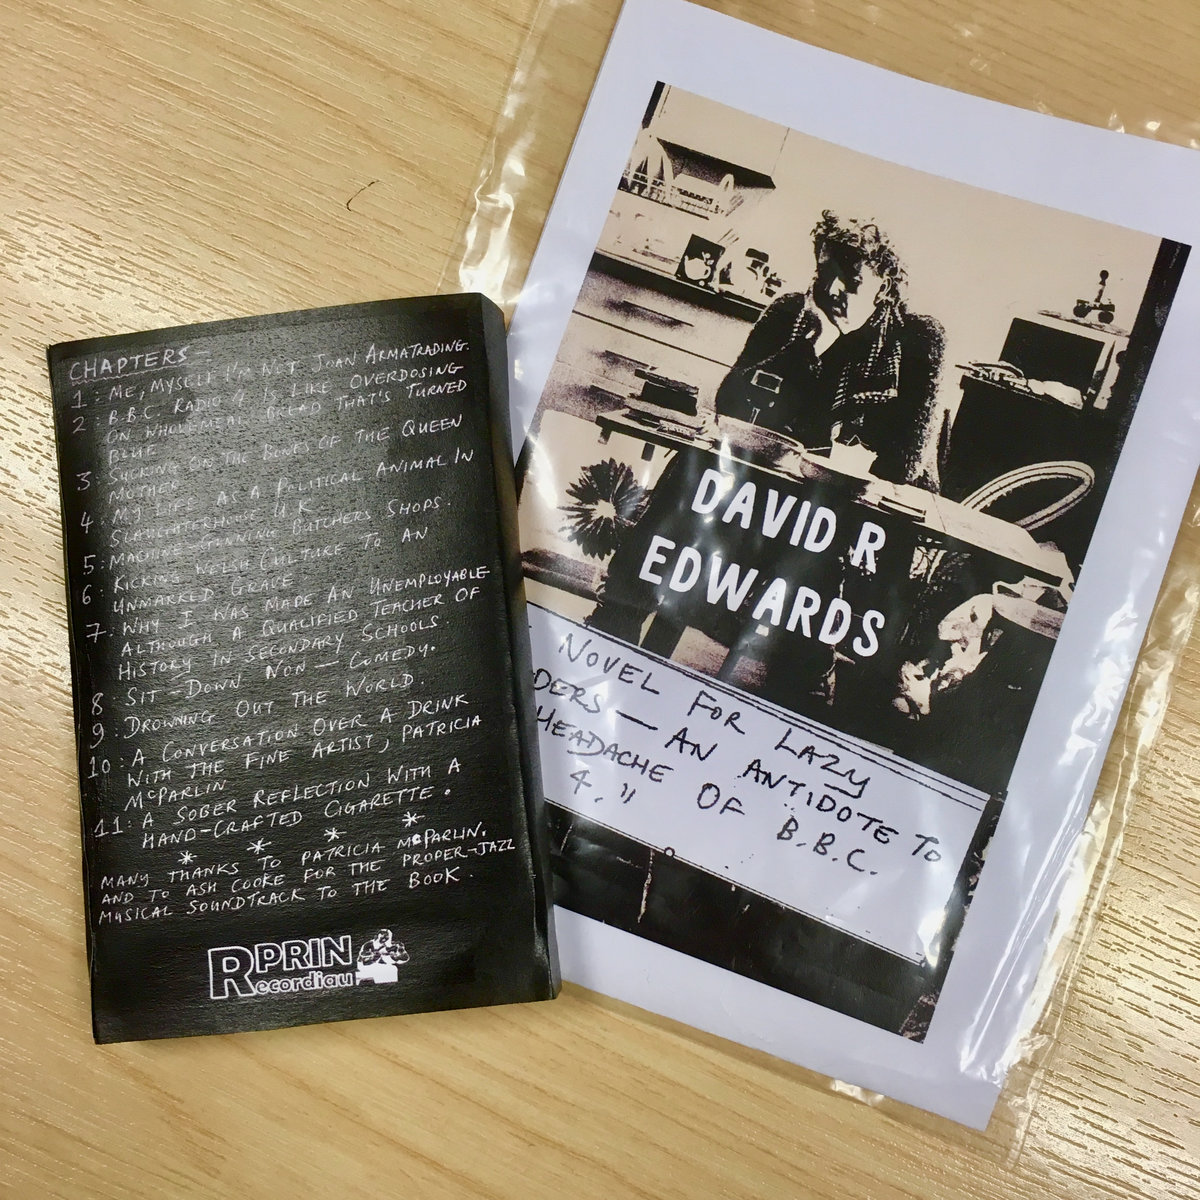 CHAPTERS —
1: ME, MYSELF I'M NOT JOAN ARMATRADING.
2: B.B.C. RADIO 4 IS LIKE OVERDOSING
ON WHOLEMEAL BREAD THAT'S TURNED
BLUE
3: SUCKING ON THE BONES OF THE QUEEN
MOTHER
4: MY LIFE AS A POLITICAL ANIMAL IN
SLAUGHTERHOUSE U.K
5: MACHINE-GUNNING BUTCHERS SHOPS.
6: KICKING WELSH CULTURE TO AN
UNMARKED GRAVE
7: WHY I WAS MADE AN UNEMPLOYABLE
ALTHOUGH A QUALIFIED TEACHER OF
HISTORY IN SECONDARY SCHOOLS.
8: SIT-DOWN NON-COMEDY.
9: DROWNING OUT THE WORLD.
10: A CONVERSATION OVER A DRINK
WITH THE FINE ARTIST, PATRICIA
McPARLIN
11: A SOBER REFLECTION WITH A
HAND-CRAFTED CIGARETTE.
* * * *
MANY THANKS TO PATRICIA McPARLIN.
AND TO ASH COOKE FOR THE PROPER-JAZZ
MUSICAL SOUNDTRACK TO THE BOOK.
RPRIN
Recordiau
DAVID R
EDWARDS
NOVEL FOR LAZY
DERS — AN ANTIDOTE TO
HEADACHE OF B.B.C.
4."